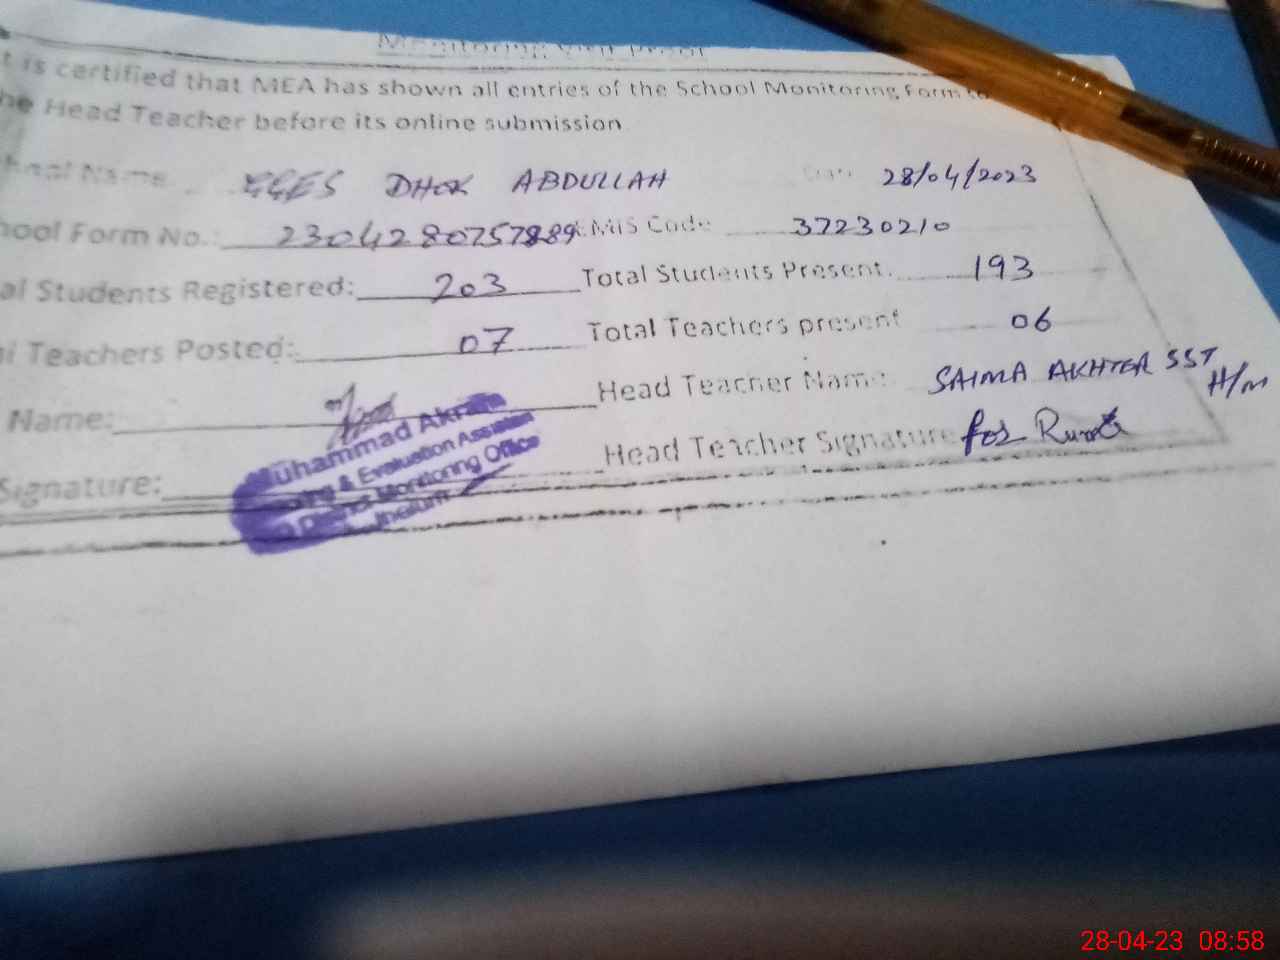 Monitoring Visit Proof
t is certified that MEA has shown all entries of the School Monitoring Form to
he Head Teacher before its online submission
hool Name GGES DHOK ABDULLAH Date 28/04/2023
hool Form No.: EMIS Code 37230210
al Students Registered: 203 Total Students Present: 193
al Teachers Posted: 07 Total Teachers present 06
Name: Head Teacher Name: SAIMA AKHTER SST
H/M
Signature: Head Teacher Signature for
Muhammad Akram
Monitoring & Evaluation Assistant
District Monitoring Office
Jhelum
28-04-23 08:58